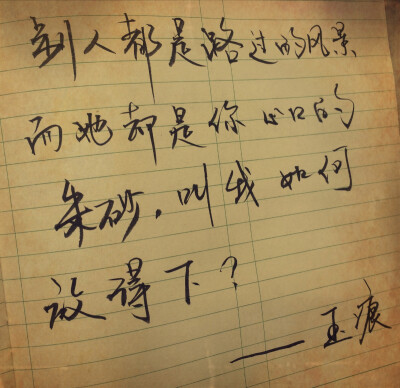 别人都是路过的风景
而她却是你心口的
朱砂，叫我如何
放得下？
——玉痕